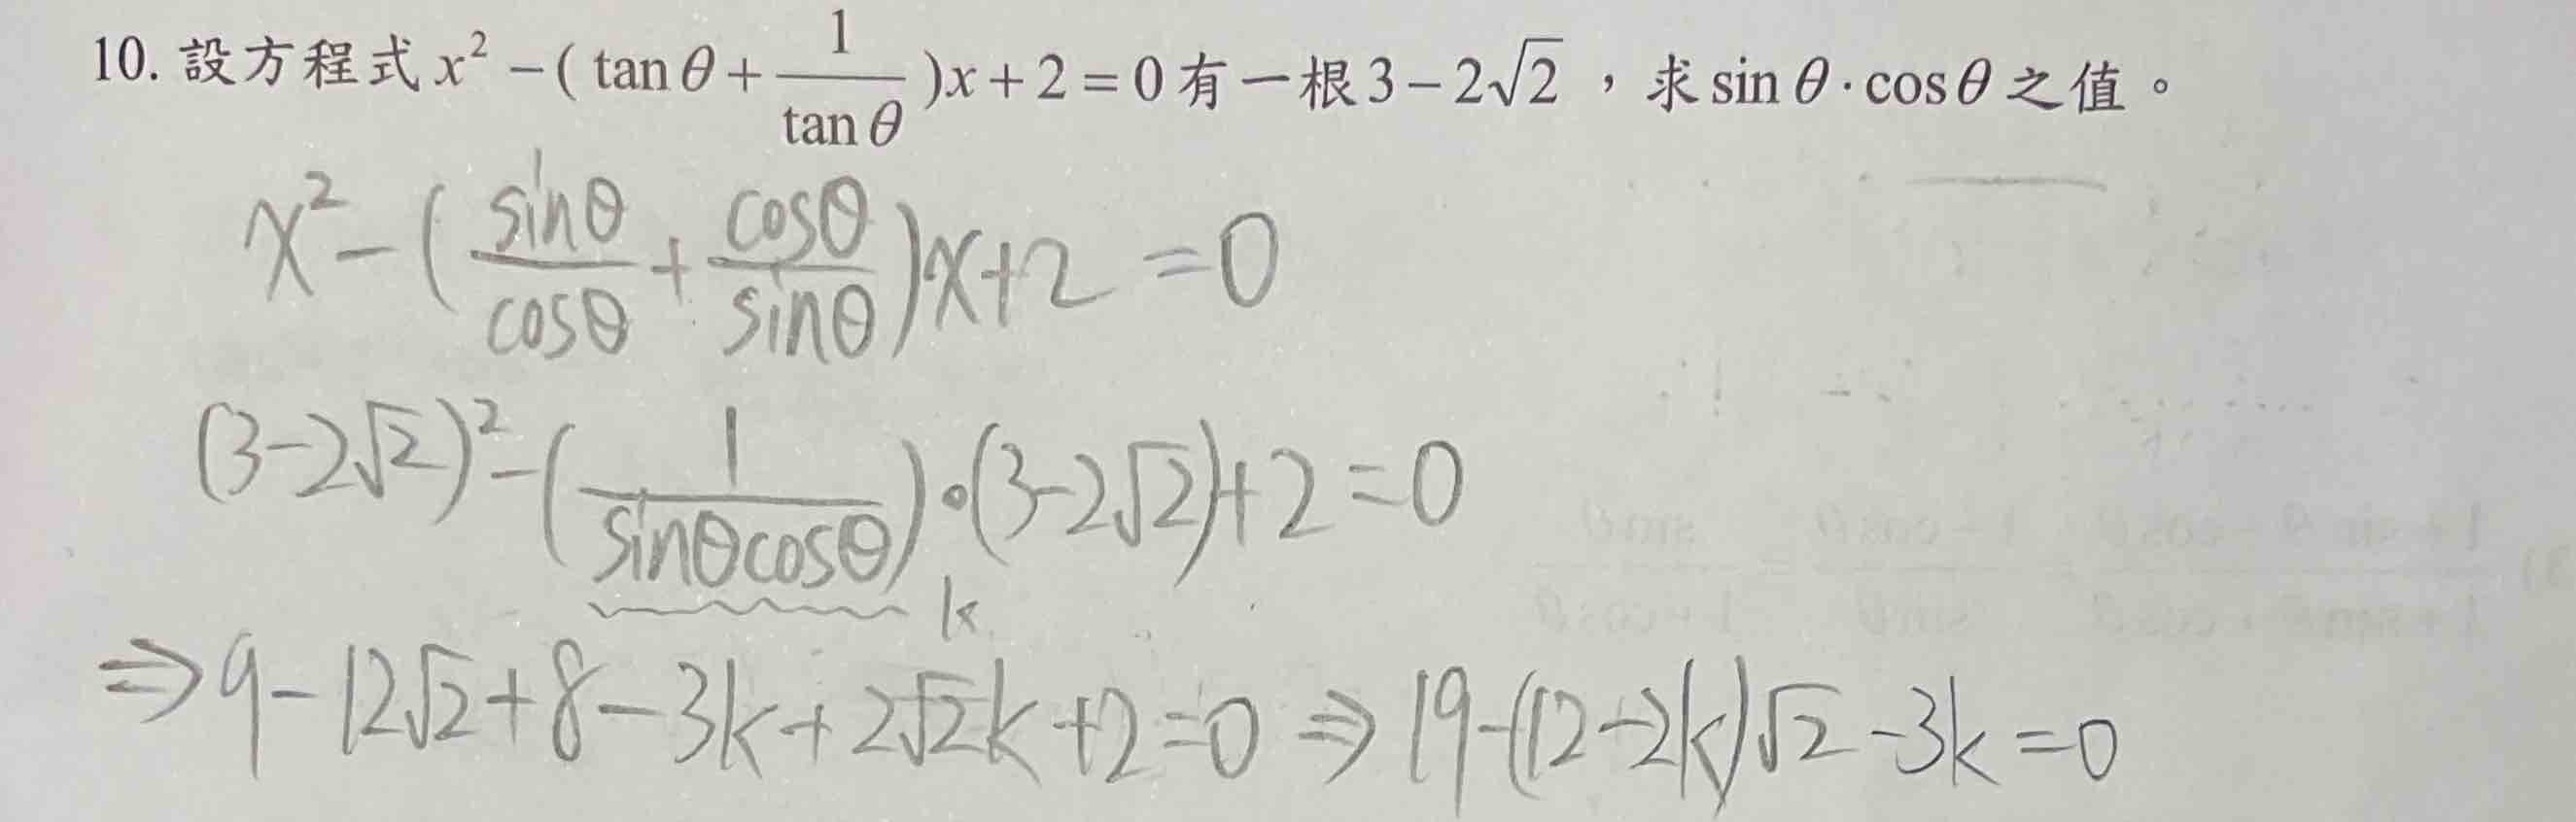 10. 設方程式 x² − ( tan θ + 1/tan θ )x + 2 = 0 有一根 3 − 2√2 ，求 sin θ · cos θ 之值。
x² − ( sinθ/cosθ + cosθ/sinθ )x + 2 = 0
(3−2√2)² − ( 1/sinθcosθ )·(3−2√2) + 2 = 0
k
⇒ 9 − 12√2 + 8 − 3k + 2√2k + 2 = 0 ⇒ 19 − (12−2k)√2 − 3k = 0